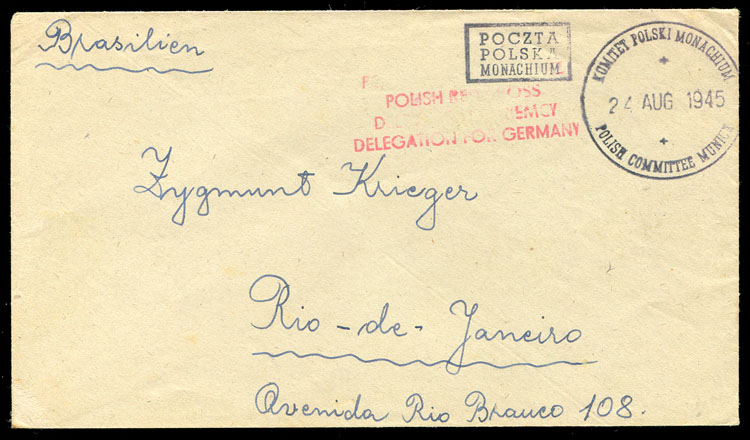 Brasilien
POCZTA
POLSKA
MONACHIUM
KOMITET POLSKI MONACHIUM
24 AUG 1945
POLISH COMMITTEE MUNICH
POLISH RED CROSS
DELEGATION FOR GERMANY
Zygmunt Krieger
Rio-de-Janeiro
Avenida Rio Branco 108.